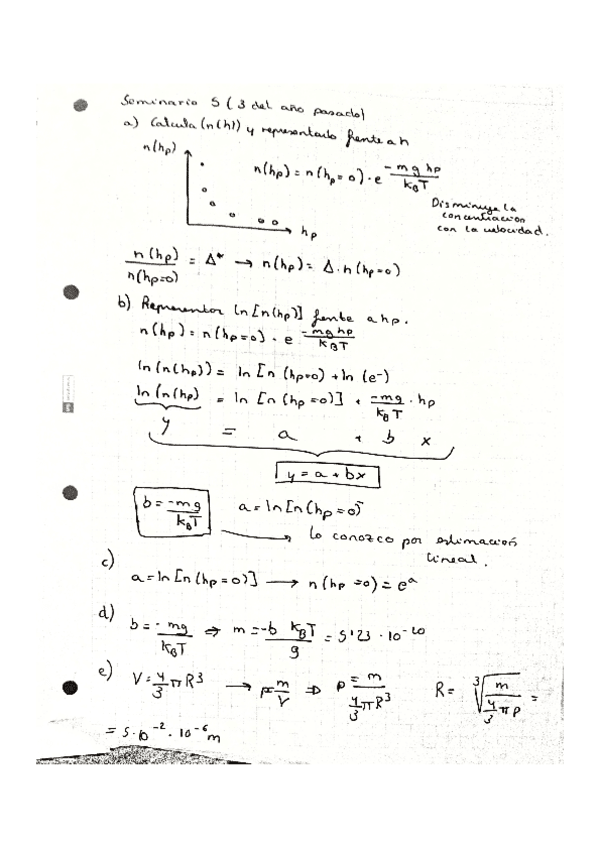 Seminario 5 (3 del año pasado)
a) Calcula (n(h)) y representarlo frente a h
n(hp)
n(hp) = n(hp=0) · e^(-mg hp / kBT)
Disminuye la
concentración
con la velocidad.
hp
n(hp) / n(hp=0) = Δ* → n(hp) = Δ · n(hp=0)
b) Representar ln[n(hp)] frente a hp.
n(hp) = n(hp=0) · e^(-mg hp / kBT)
ln(n(hp)) = ln[n(hp=0) + ln(e⁻)
ln(n(hp) = ln[n(hp=0)] + -mg / kBT · hp
y = a + b x
y = a + bx
b = -mg / kBT    a = ln[n(hp=0)
→ lo conozco por estimación
lineal.
c)
a = ln[n(hp=0)] → n(hp=0) = e^a
d)
b = - mg / kBT ⇒ m = -b kBT / g = 5'23 · 10^-20
e) V = 4/3 π R³ → ρ = m/V ⇒ ρ = m / (4/3 π R³)    R = ³√(m / (4/3 π ρ)) =
= 5·10^-2 · 10^-6 m